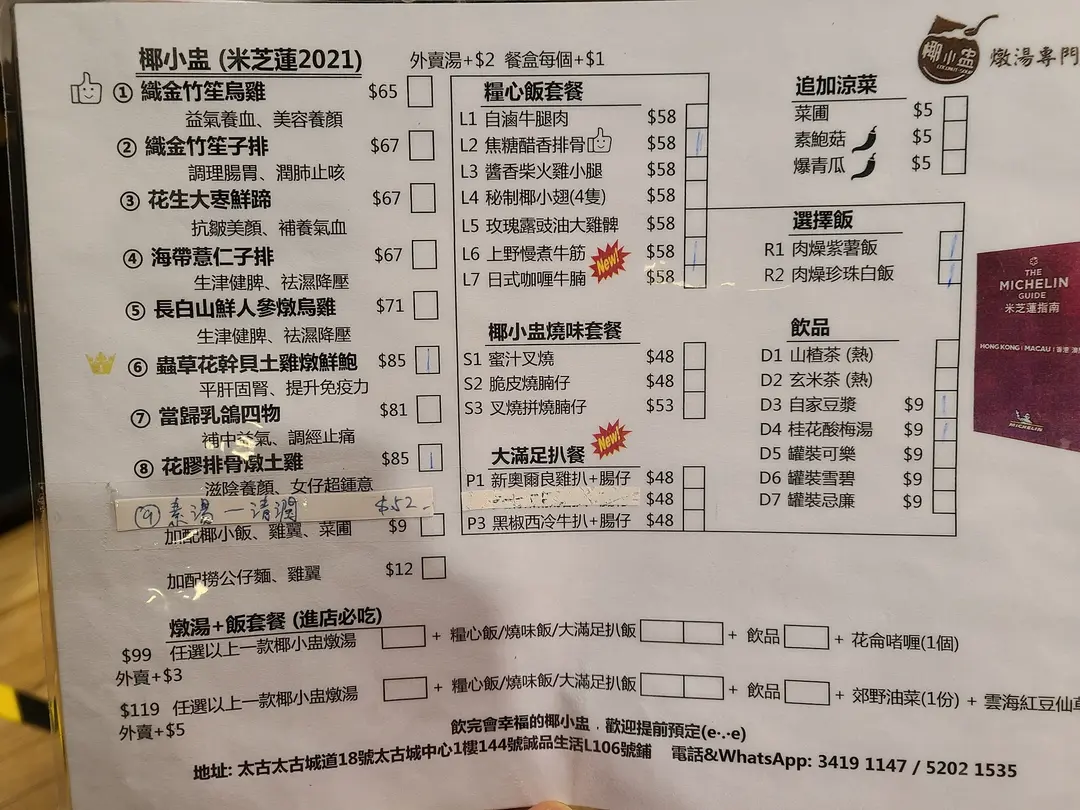 椰小盅 (米芝蓮2021)
外賣湯+$2 餐盒每個+$1
① 織金竹笙烏雞 $65
益氣養血、美容養顏
② 織金竹笙子排 $67
調理腸胃、潤肺止咳
③ 花生大枣鮮蹄 $67
抗皺美顏、補養氣血
④ 海帶薏仁子排 $67
生津健脾、祛濕降壓
⑤ 長白山鮮人參燉烏雞 $71
生津健脾、祛濕降壓
⑥ 蟲草花幹貝土雞燉鮮鮑 $85
平肝固腎、提升免疫力
⑦ 當歸乳鴿四物 $81
補中益氣、調經止痛
⑧ 花膠排骨燉土雞 $85
滋陰養顏、女仔超鍾意
(9) 素湯一清潤 $52
加配椰小飯、雞翼、菜圃 $9
加配撈公仔麵、雞翼 $12
糧心飯套餐
L1 白滷牛腿肉 $58
L2 焦糖醋香排骨 $58
L3 醬香柴火雞小腿 $58
L4 秘制椰小翅(4隻) $58
L5 玫瑰露豉油大雞髀 $58
L6 上野慢煮牛筋 $58
New!
L7 日式咖喱牛腩 $58
椰小盅燒味套餐
S1 蜜汁叉燒 $48
S2 脆皮燒腩仔 $48
S3 叉燒拼燒腩仔 $53
大滿足扒餐
New!
P1 新奧爾良雞扒+腸仔 $48
$48
P3 黑椒西冷牛扒+腸仔 $48
追加涼菜
菜圃 $5
素鮑菇 $5
爆青瓜 $5
選擇飯
R1 肉燥紫薯飯
R2 肉燥珍珠白飯
飲品
D1 山楂茶 (熱)
D2 玄米茶 (熱)
D3 自家豆漿 $9
D4 桂花酸梅湯 $9
D5 罐裝可樂 $9
D6 罐裝雪碧 $9
D7 罐裝忌廉 $9
椰小盅
COCONUT SOUP
燉湯專門
THE
MICHELIN
GUIDE
米芝蓮指南
HONG KONG | MACAU | 香港 澳
MICHELIN
燉湯+飯套餐 (進店必吃)
$99 任選以上一款椰小盅燉湯 + 糧心飯/燒味飯/大滿足扒飯 + 飲品 + 花侖啫喱(1個)
外賣+$3
$119 任選以上一款椰小盅燉湯 + 糧心飯/燒味飯/大滿足扒飯 + 飲品 + 郊野油菜(1份) + 雲海紅豆仙
外賣+$5
飲完會幸福的椰小盅﹐歡迎提前預定(e-.-e)
地址: 太古太古城道18號太古城中心1樓144號誠品生活L106號鋪 電話&WhatsApp: 3419 1147 / 5202 1535